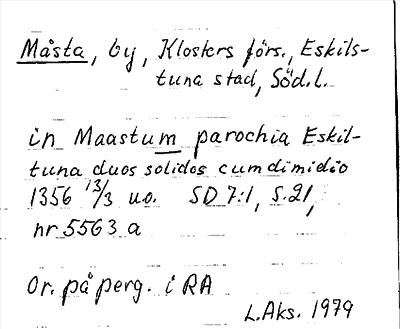 Måsta, by, Klosters förs., Eskils-
tuna stad, Söd.l.
in Maastum parochia Eskil-
tuna duos solidos cum dimidio
1356 13/3 u.o. SD 7:1, S.21,
nr 5563 a
Or. på perg. i RA
L.Aks. 1979